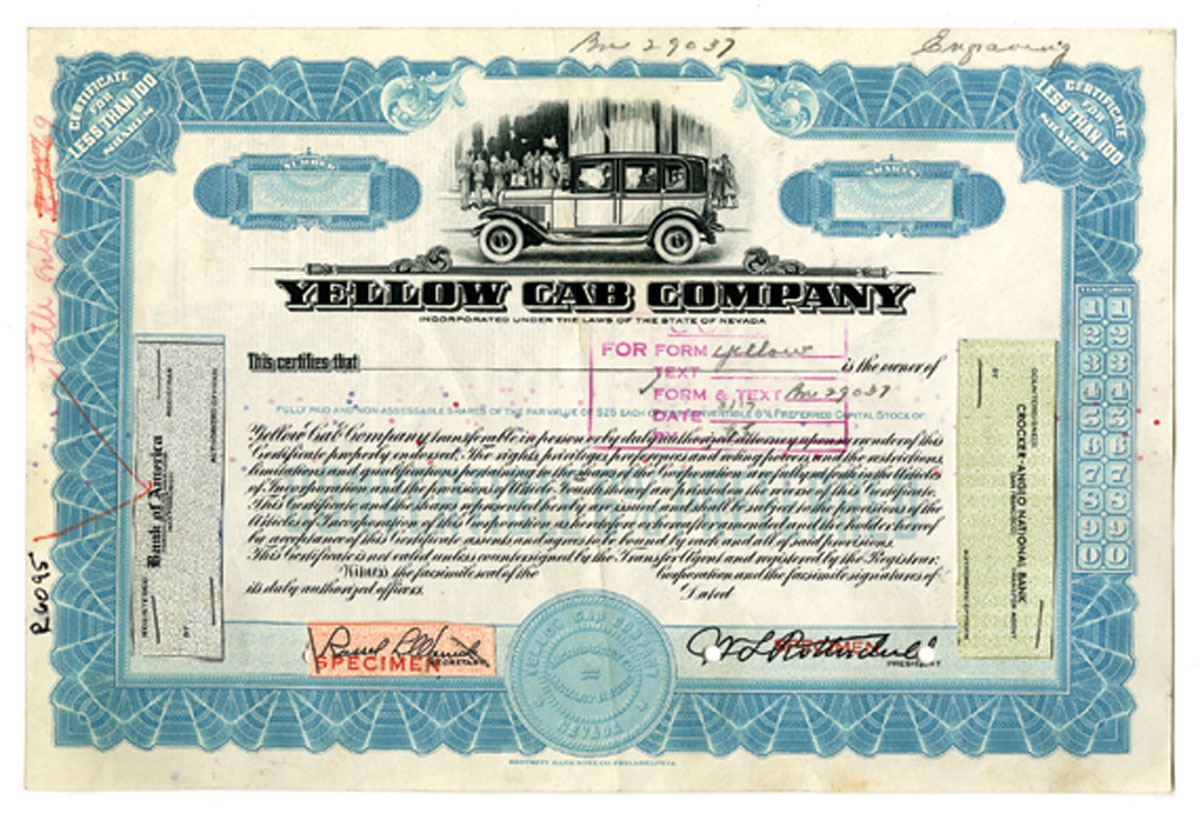 29037
Engraving
CERTIFICATE
FOR
LESS THAN 100
SHARES
CERTIFICATE
FOR
LESS THAN 100
SHARES
NUMBER
SHARES
YELLOW CAB COMPANY
INCORPORATED UNDER THE LAWS OF THE STATE OF NEVADA
This certifies that
is the owner of
FOR FORM yellow
TEXT
FORM & TEXT 29037
DATE
FULLY PAID AND NON ASSESSABLE SHARES OF THE PAR VALUE OF $25 EACH OF THE CONVERTIBLE 6% PREFERRED CAPITAL STOCK OF
Yellow Cab Company, transferable in person or by duly authorized attorney upon surrender of this
Certificate properly endorsed. The rights, privileges, preferences and voting powers, and the restrictions,
limitations and qualifications pertaining to the shares of the Corporation are fully set forth in the Articles
of Incorporation and the provisions of Article Fourth thereof are printed on the reverse of this Certificate.
This Certificate and the shares represented hereby are issued and shall be subject to the provisions of the
Articles of Incorporation of this Corporation as heretofore or hereafter amended and the holder hereof
by acceptance of this Certificate assents and agrees to be bound by each and all of said provisions.
This Certificate is not valid unless countersigned by the Transfer Agent and registered by the Registrar.
Witness the facsimile seal of the Corporation and the facsimile signatures of
its duly authorized officers. Dated
REGISTERED:
Bank of America
BY
REGISTRAR
AUTHORIZED OFFICER
COUNTERSIGNED:
CROCKER-ANGLO NATIONAL BANK
SAN FRANCISCO
TRANSFER AGENT
BY
AUTHORIZED OFFICER
1 1
2 2
3 3
4 4
5 5
6 6
7 7
8 8
9 9
0 0
Title only
R6095
SPECIMEN
SECRETARY
SPECIMEN
PRESIDENT
YELLOW CAB COMPANY
NEVADA
SECURITY BANK NOTE CO. PHILADELPHIA